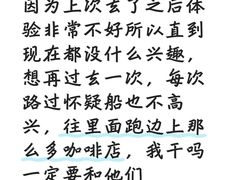 因为上次去了之后体
验非常不好所以直到
现在都没什么兴趣，
想再过去一次，每次
路过怀疑船也不高
兴，往里面跑边上那
么多咖啡店，我干吗
一定要和他们